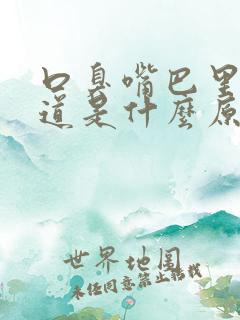 口臭嘴巴里
道是什麼原
世界地图
未经同意禁止转载